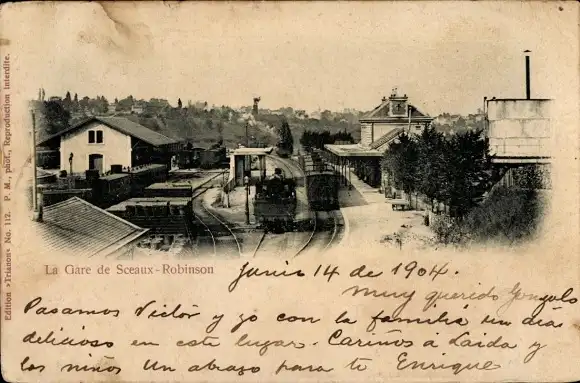 Edition »Trianon« No. 112. P. M., phot., Reproduction interdite.
La Gare de Sceaux-Robinson
Junio 14 de 1904.
Muy querido Gonzalo
Pasamos Victór y yo con la familia un día
delicioso en este lugar. Cariños á Laida y
los niños un abrazo para ti Enrique